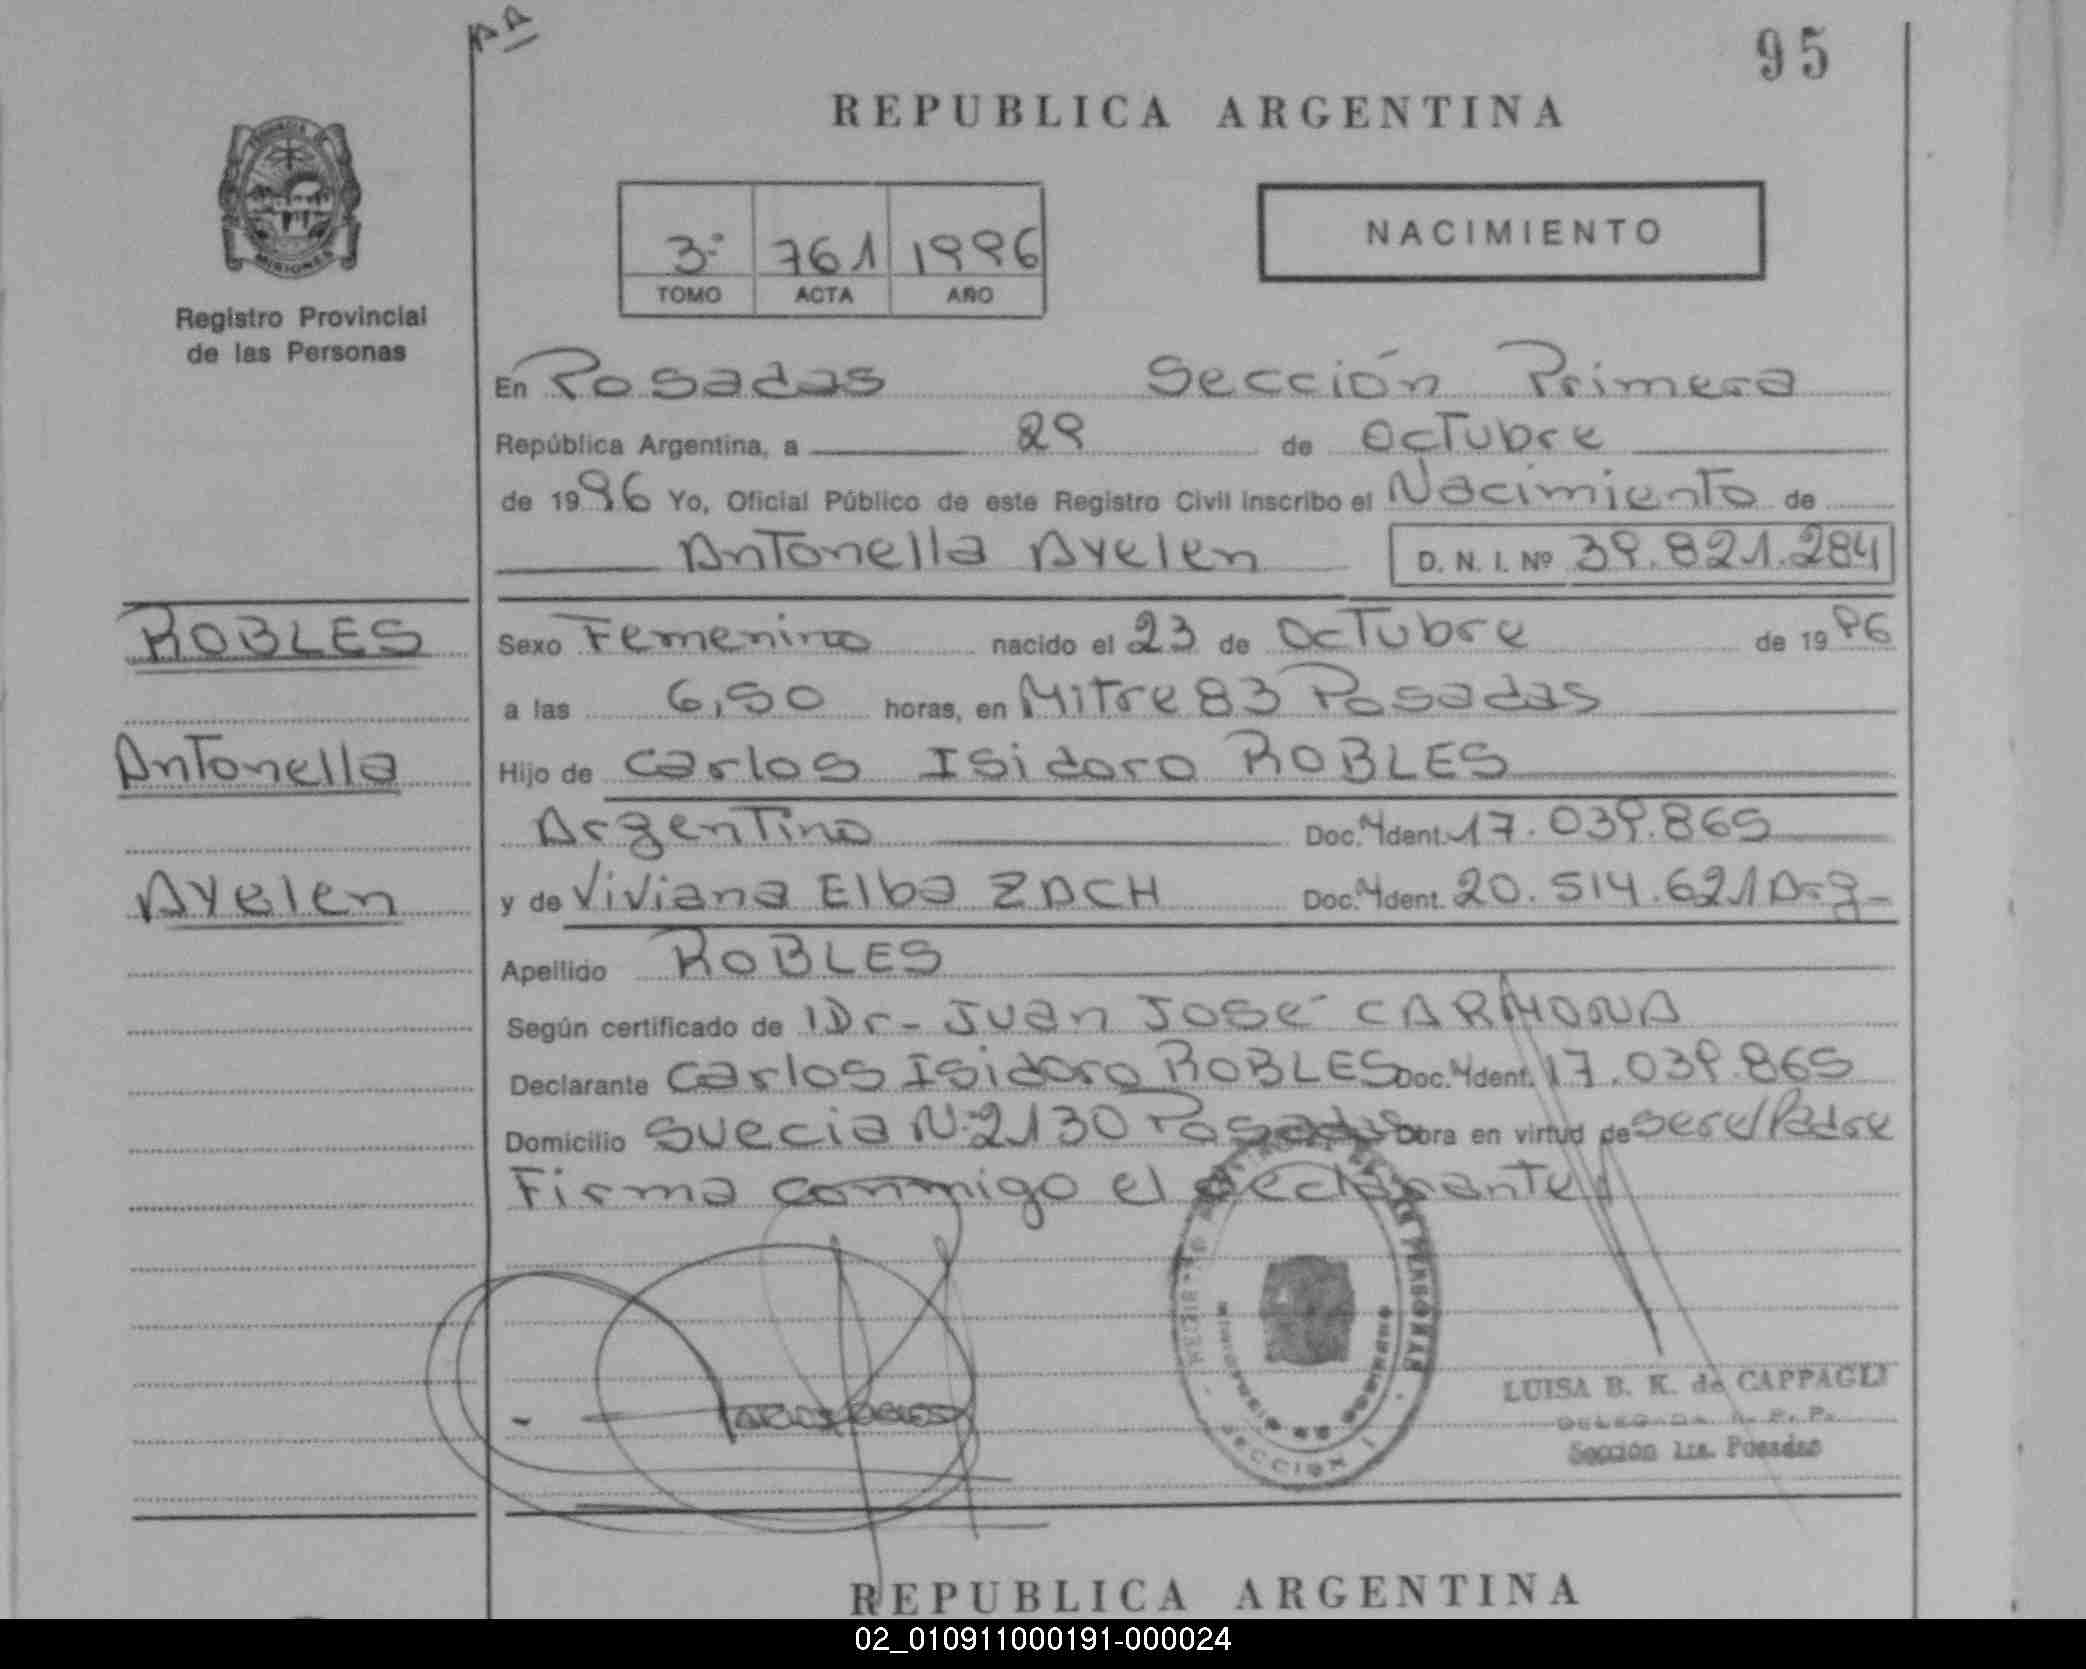 AA
95
REPUBLICA ARGENTINA
PROVINCIA DE
MISIONES
Registro Provincial
de las Personas
3º 761 1996
TOMO ACTA AÑO
NACIMIENTO
En Posadas Sección Primera
República Argentina, a 29 de Octubre
de 1996 Yo, Oficial Público de este Registro Civil inscribo el Nacimiento de
Antonella Ayelen D. N. I. Nº 39.821.284
ROBLES
Antonella
Ayelen
Sexo Femenino nacido el 23 de Octubre de 1996
a las 6,50 horas, en Mitre 83 Posadas
Hijo de Carlos Isidoro ROBLES
Argentino Doc. Ident. 17.039.865
y de Viviana Elba ZACH Doc. Ident. 20.514.621 Arg-
Apellido ROBLES
Según certificado de Dr- Juan José CARMONA
Declarante Carlos Isidoro ROBLES Doc. Ident. 17.039.865
Domicilio Suecia Nº 2130 Posadas Obra en virtud de ser el Padre
Firma conmigo el declarante
MINISTERIO DE GOBIERNO
SECCION I
LUISA B. K. de CAPPAGLI
DELEGADA R. P. P.
Sección 1ra. Posadas
REPUBLICA ARGENTINA
02_010911000191-000024